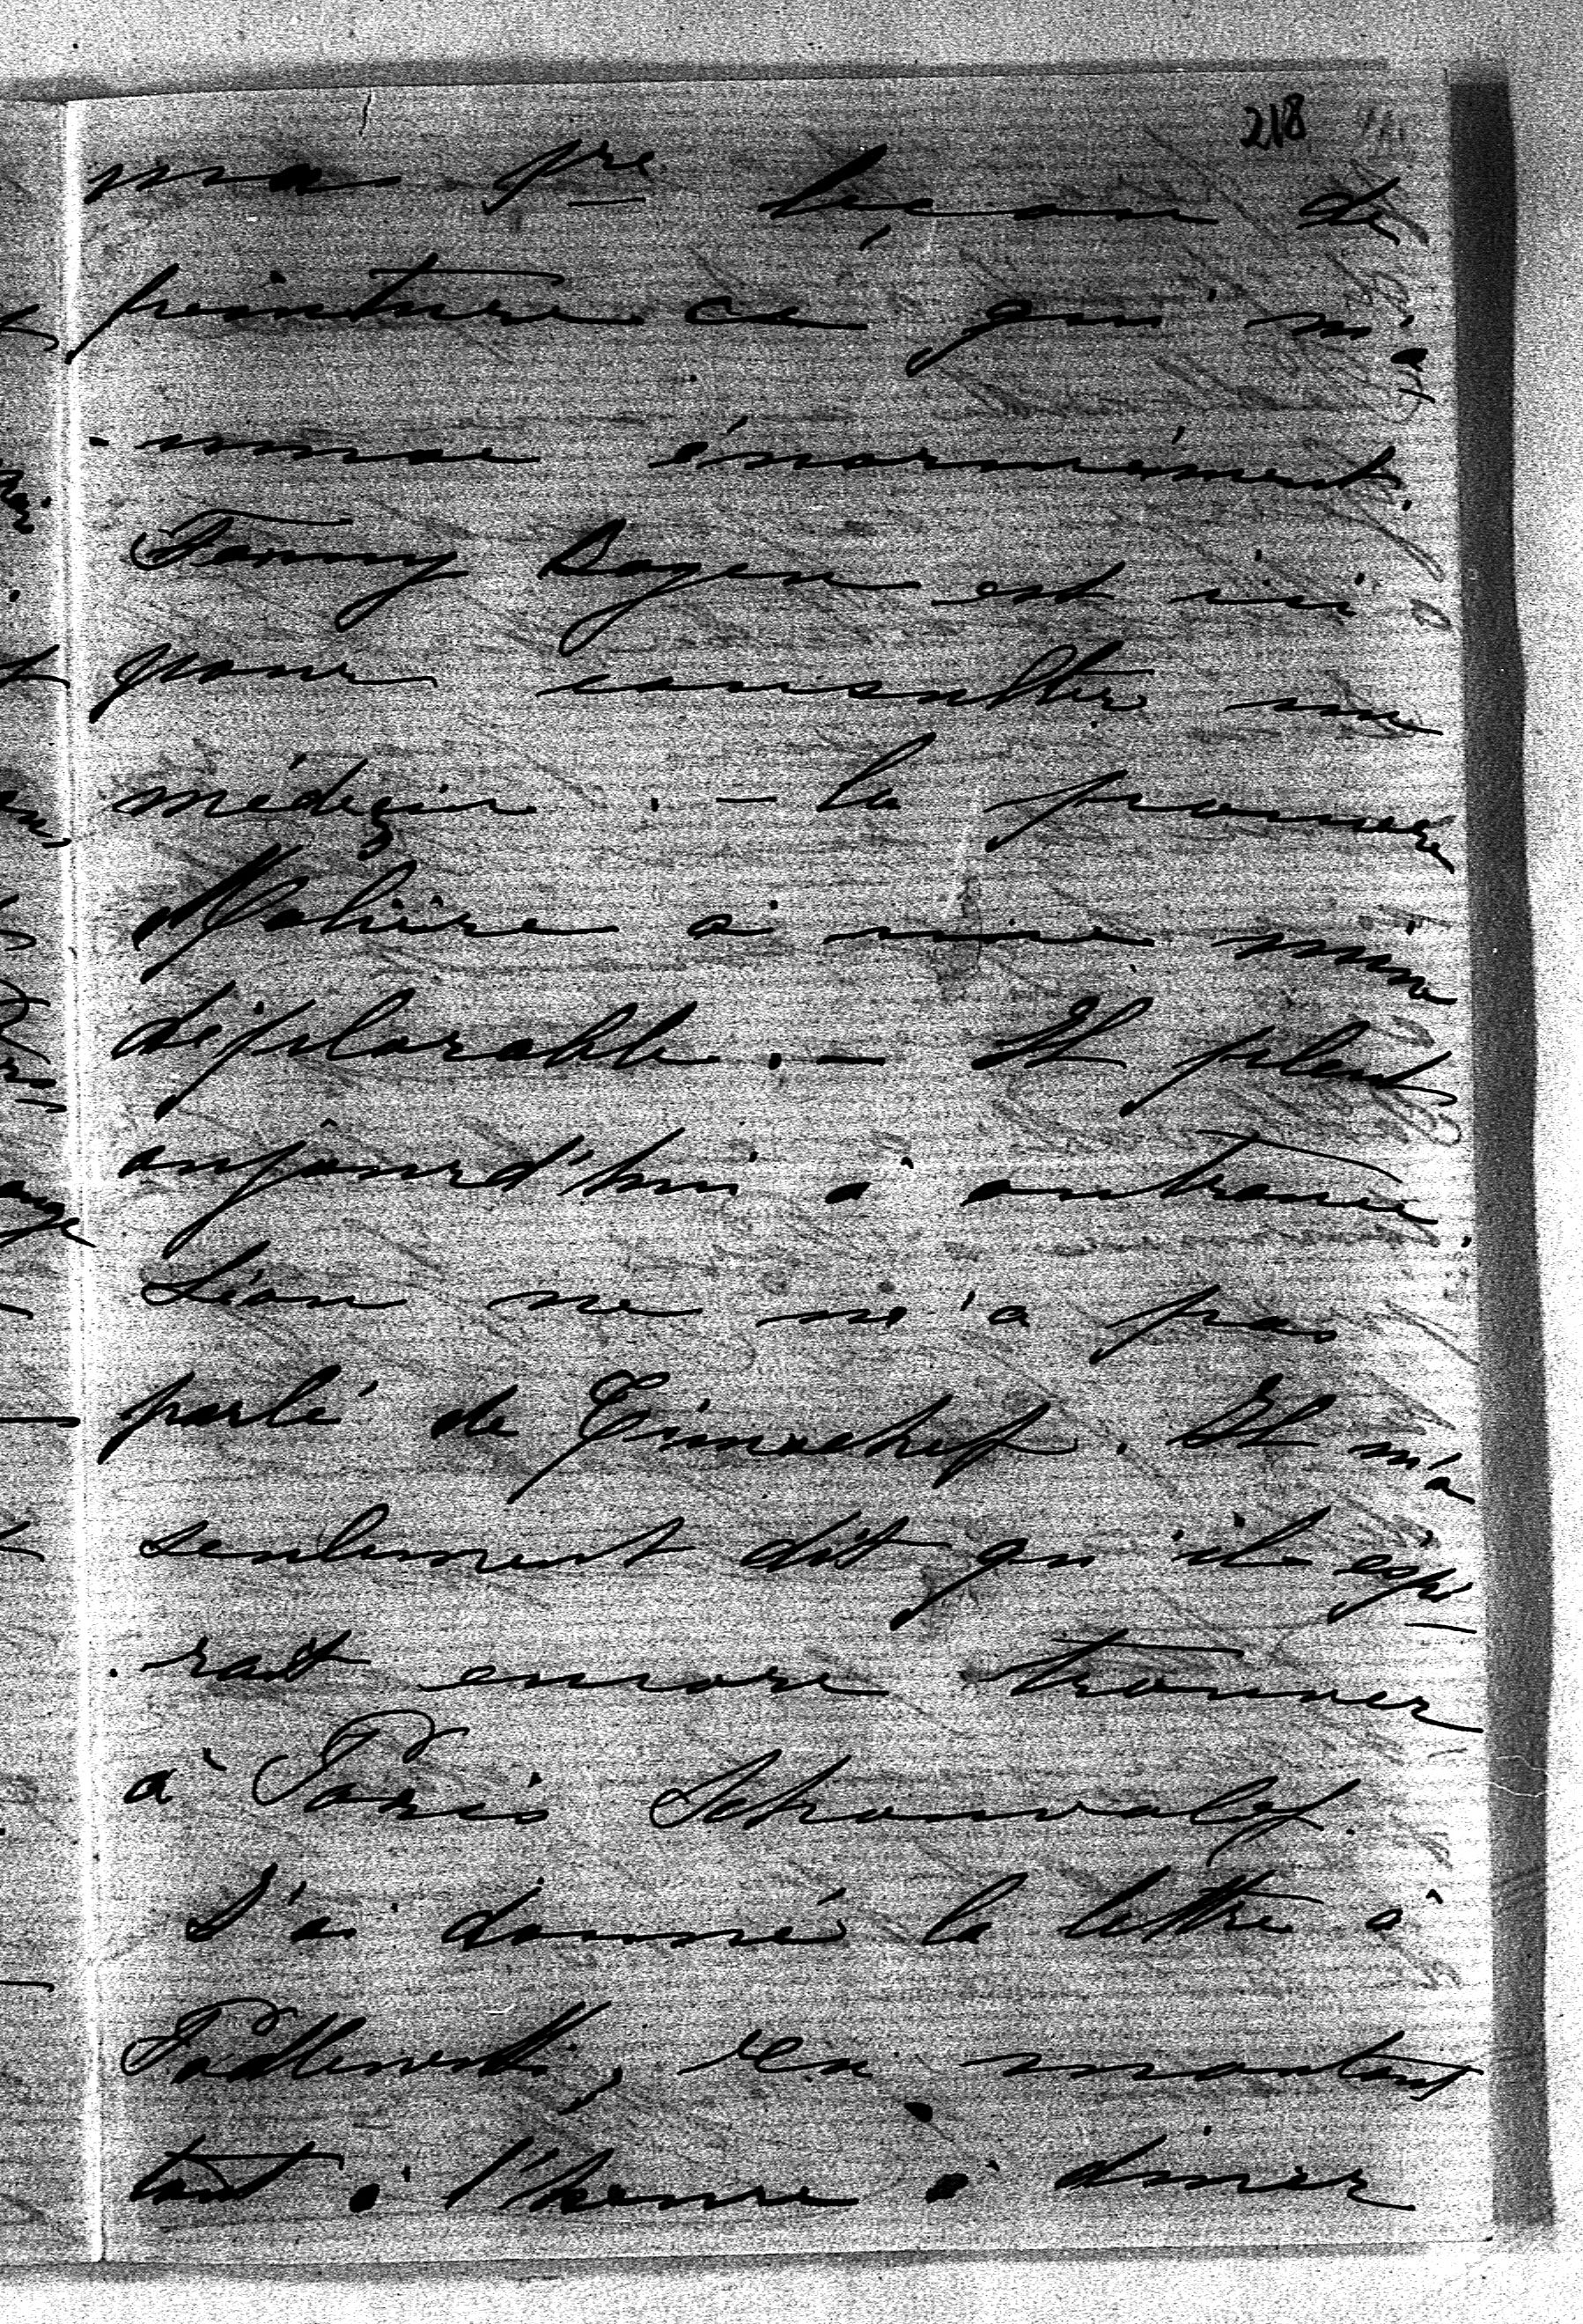 218
ma 1re leçon de
peinture ce qui m'a
muse énormément.
Fanny Bagen est ici
pour consulter un
médeçin. — La pauvre
Malvine a une mine
déplorable. — Il pleut
aujourd'hui à outrance.
Léon ne m'a pas
parlé de Timacheff. Il m'a
seulement dit qu'il espé-
rait encore trouver
à Paris Schouvaloff.
J'ai donné la lettre à
Padlewski, en montant
tout à l'heure à dîner